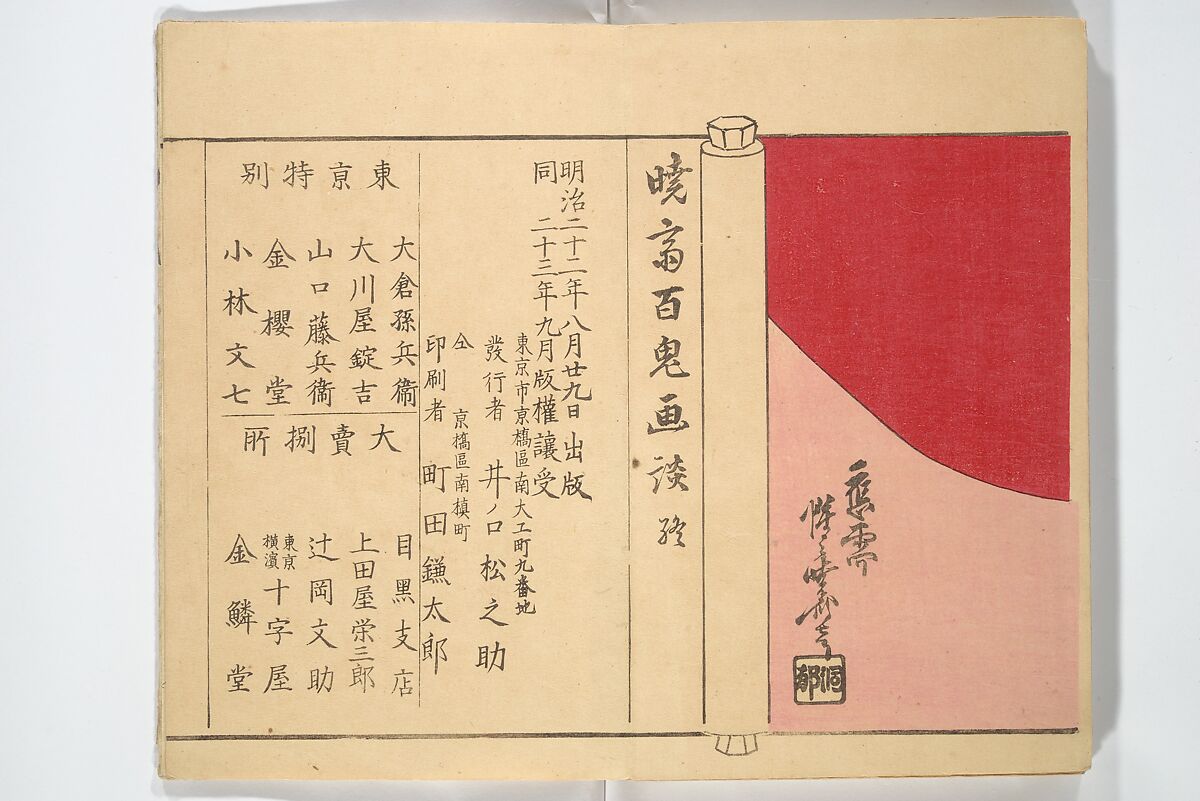 應需
惺々暁斎
洞郁
暁斎百鬼画談 終
明治二十二年八月廿九日出版
同二十三年九月版權讓受
東京市京橋區南大工町九番地
發行者 井ノ口松之助
仝 京橋區南槙町
印刷者 町田鎌太郎
東京特別
大倉孫兵衞
大川屋錠吉
山口藤兵衞
金櫻堂
小林文七
大賣捌所
目黒支店
上田屋栄三郎
辻岡文助
東京
横濱
十字屋
金鱗堂